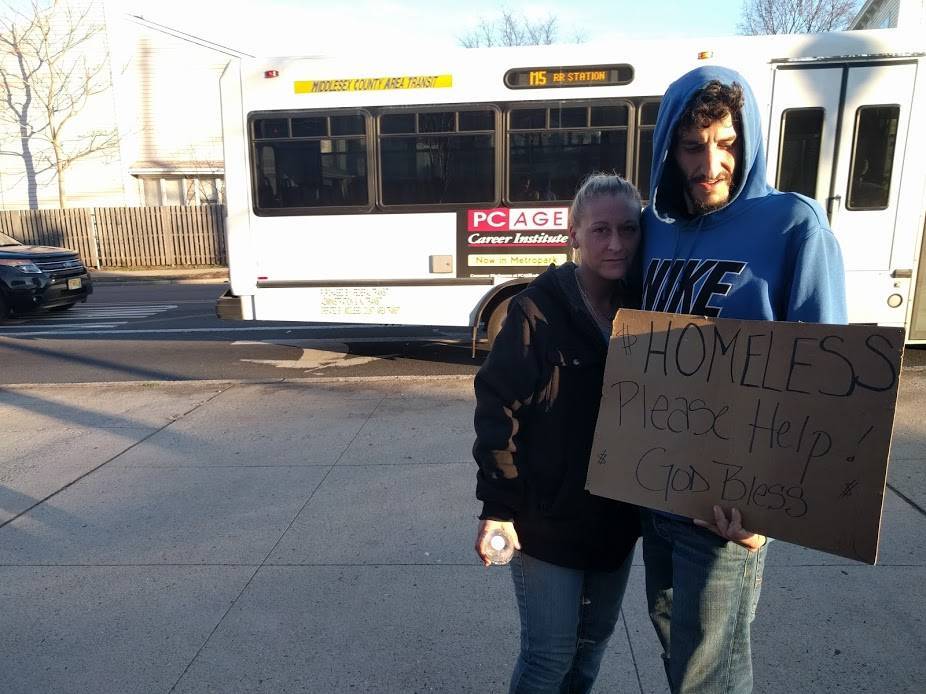 MIDDLESEX COUNTY AREA TRANSIT
M5 RR STATION
PC AGE
Career Institute
Now in Metropark
NIKE
$ HOMELESS
Please Help!
$ GOD Bless $